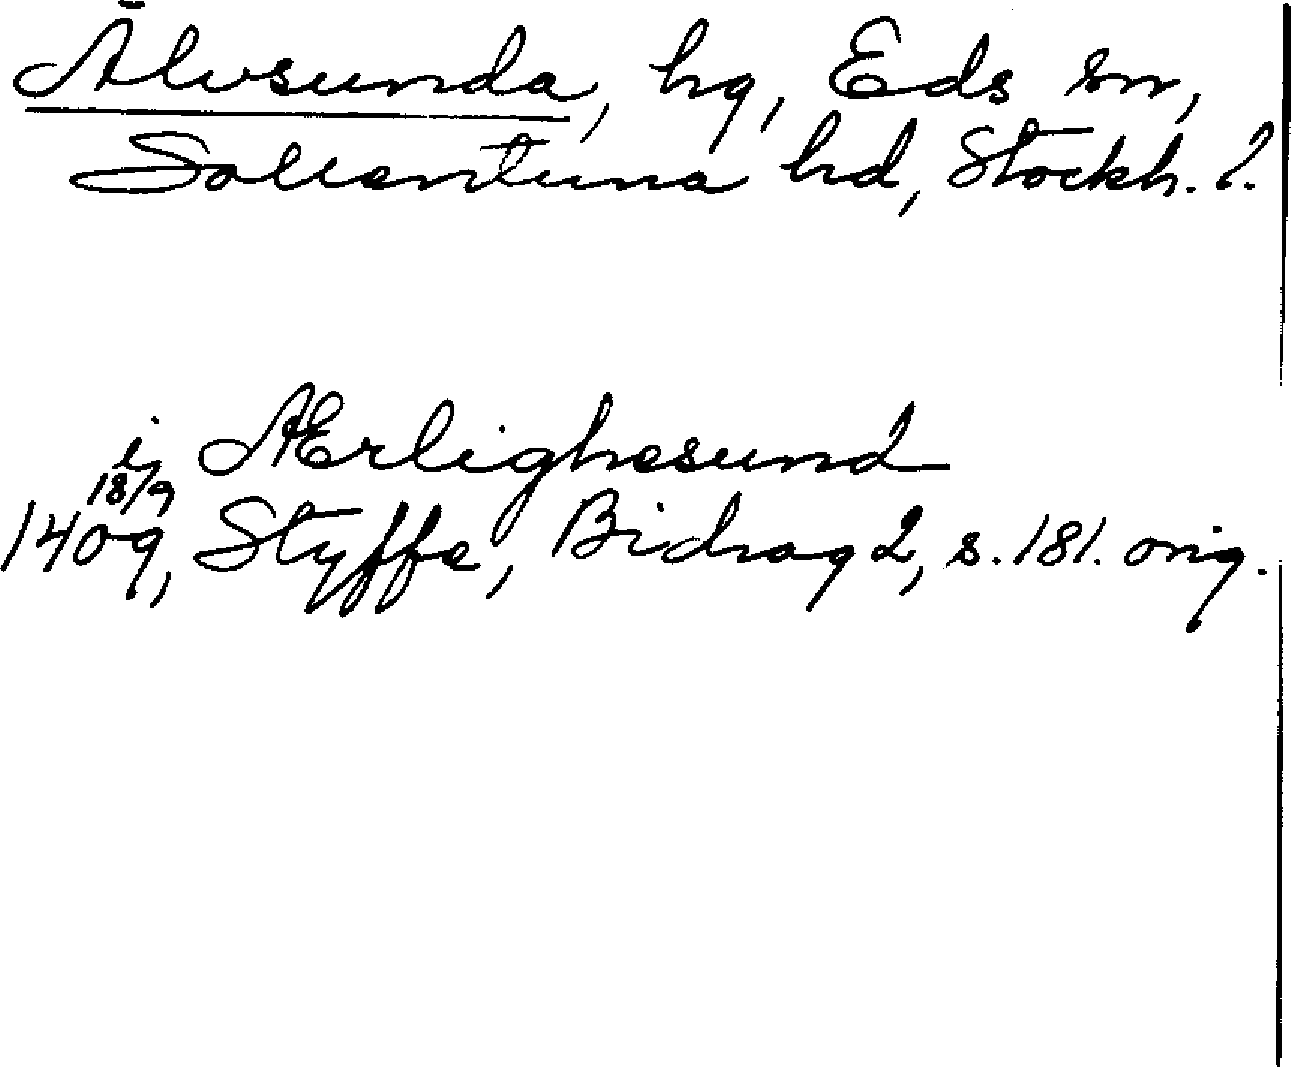 Älvsunda, hg, Eds sn,
Sollentuna hd, Stockh. l.
ij Ærlighesund
18/9
1409, Styffe, Bidrag 2, s. 181. orig.